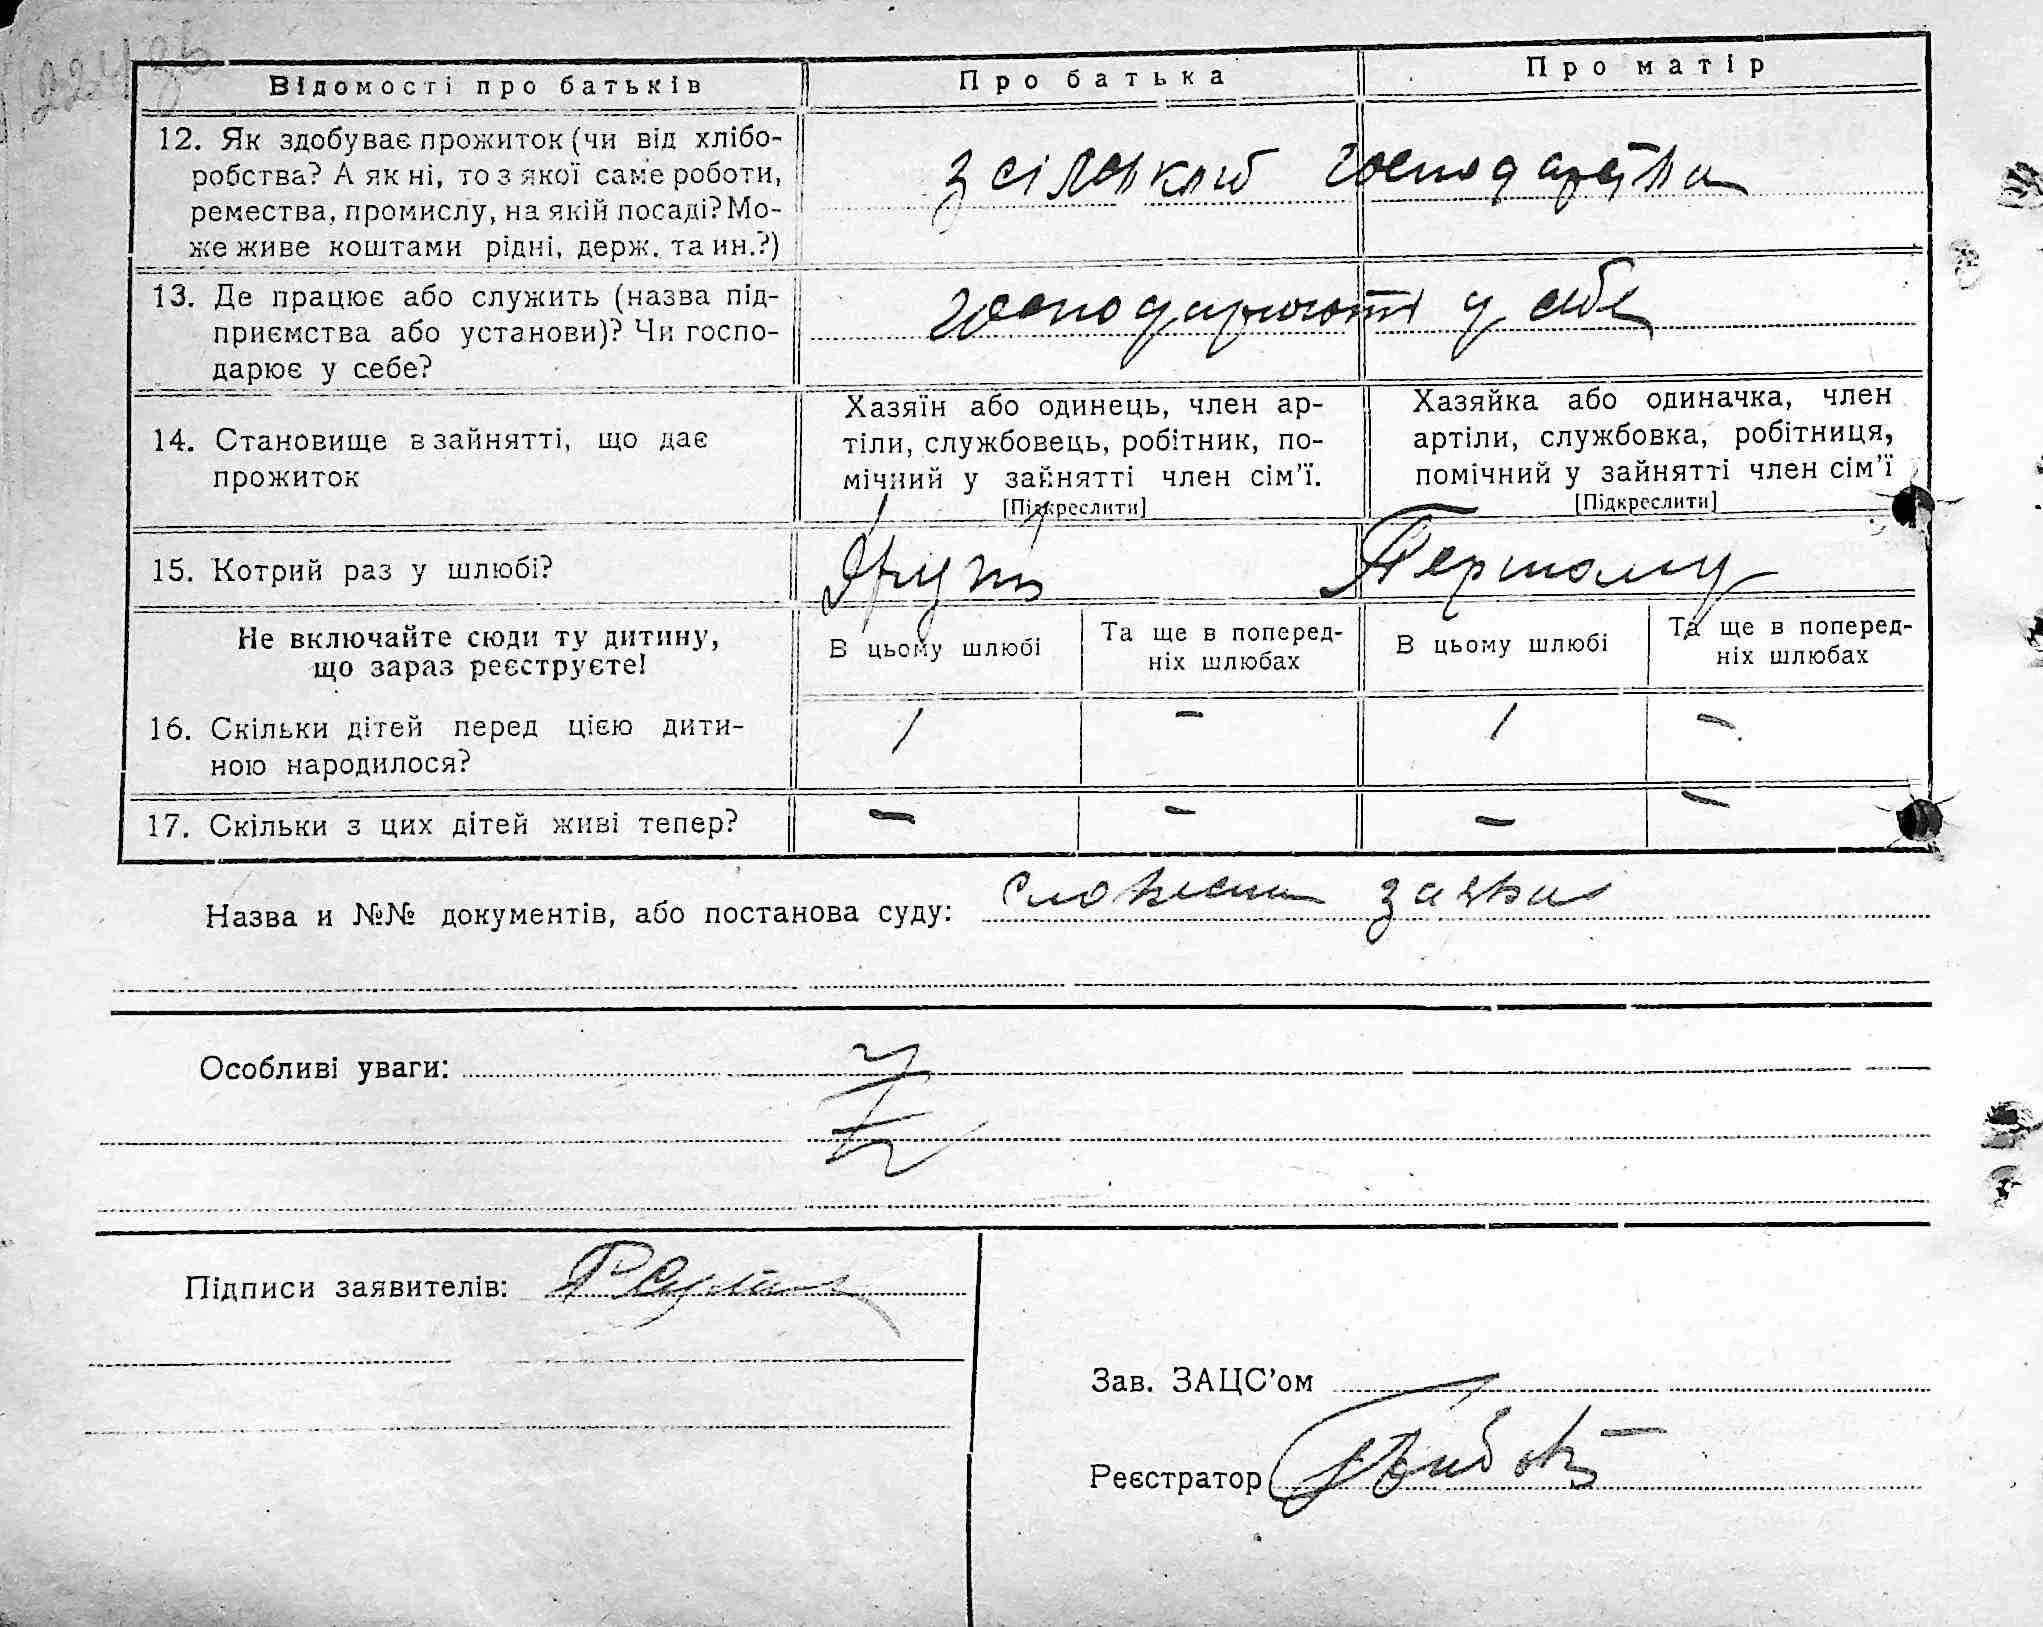 Відомості про батьків
Про батька
Про матір
12. Як здобуває прожиток (чи від хлібо-
робства? А як ні, то з якої саме роботи,
ремества, промислу, на якій посаді? Мо-
же живе коштами рідні, держ. та ин.?)
з сільського господарства
13. Де працює або служить (назва під-
приємства або установи)? Чи госпо-
дарює у себе?
господарюють у себе
14. Становище в зайнятті, що дає
прожиток
Хазяїн або одинець, член ар-
тіли, службовець, робітник, по-
мічний у зайнятті член сім'ї.
[Підкреслити]
Хазяйка або одиначка, член
артіли, службовка, робітниця,
помічний у зайнятті член сім'ї
[Підкреслити]
15. Котрий раз у шлюбі?
Першому
Не включайте сюди ту дитину,
що зараз реєструєте!
В цьому шлюбі
Та ще в поперед-
ніх шлюбах
В цьому шлюбі
Та ще в поперед-
ніх шлюбах
16. Скільки дітей перед цією дити-
ною народилося?
1 - 1 -
17. Скільки з цих дітей живі тепер?
- - - -
Назва и №№ документів, або постанова суду: словесна заява
Особливі уваги:
Підписи заявителів:
Зав. ЗАЦС'ом
Реєстратор